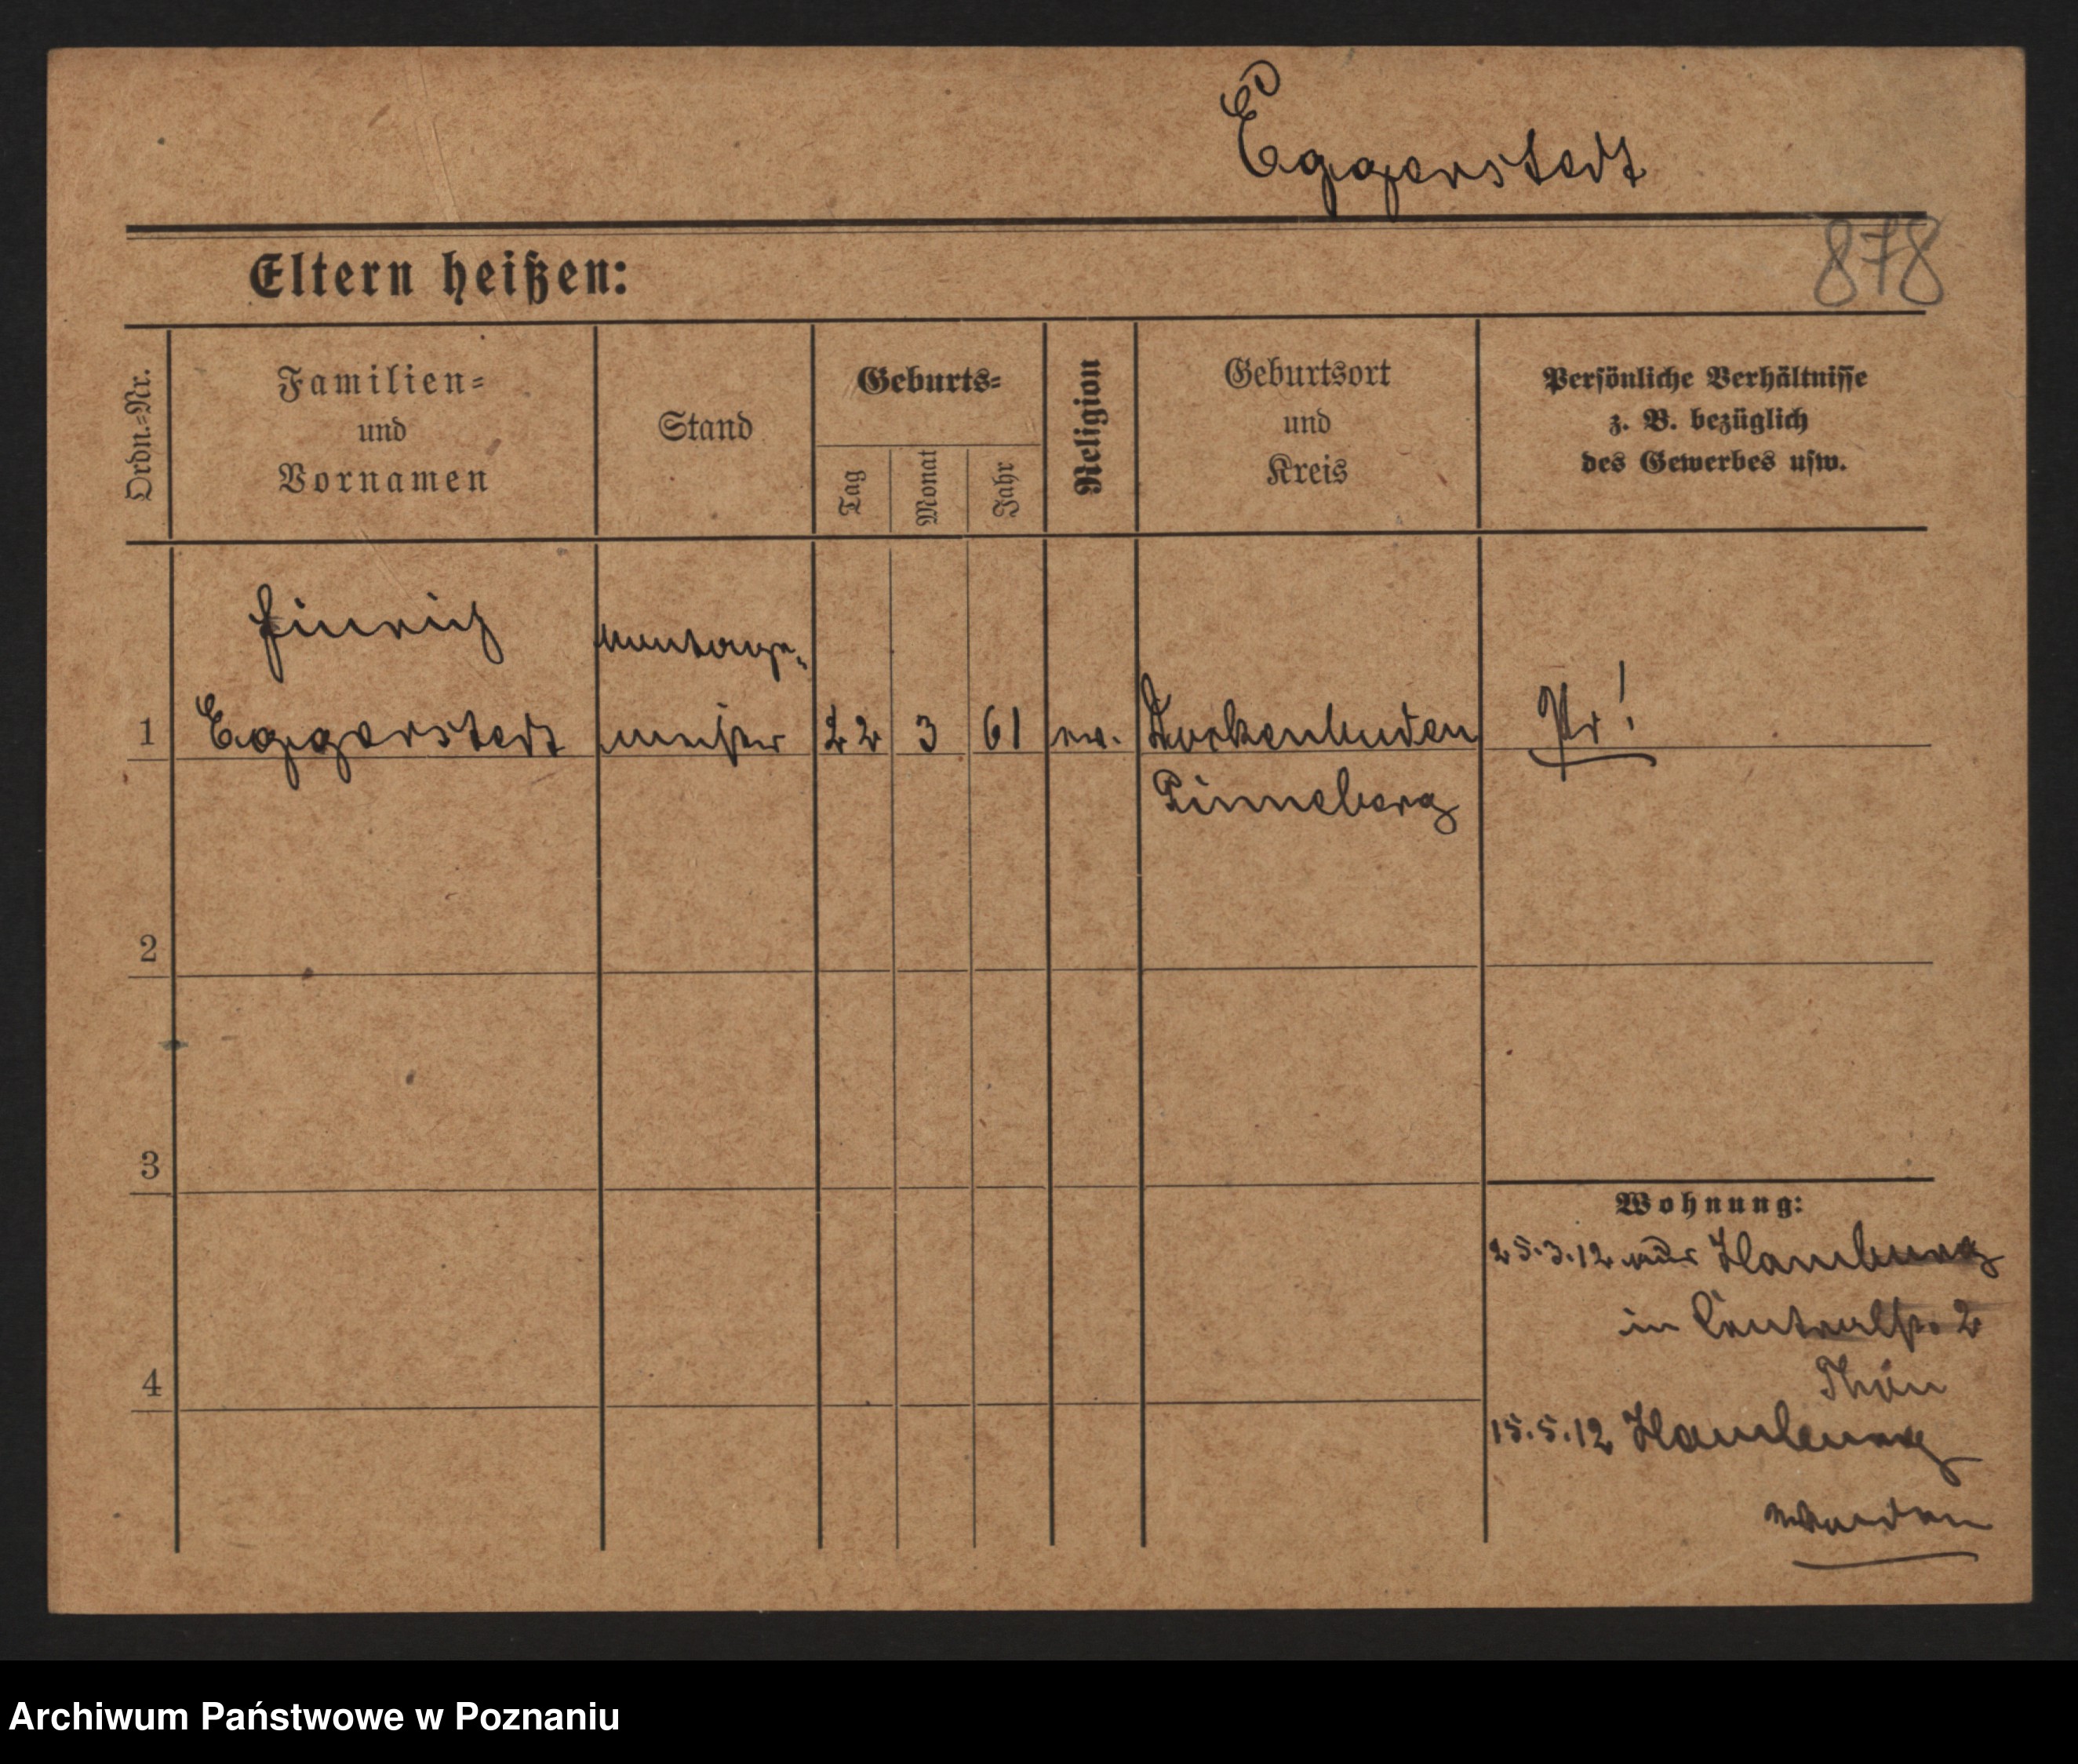 Eggerstedt
878
Eltern heißen:
Ordn.-Nr.
Familien-
und
Vornamen
Stand
Geburts-
Tag
Monat
Jahr
Religion
Geburtsort
und
Kreis
Persönliche Verhältnisse
z. B. bezüglich
des Gewerbes usw.
Hinrich
Montage-
1 Eggerstedt meister 22 3 61 ev. Dockenhuden Pr!
Pinneberg
2
3
Wohnung:
25.3.12 aus Hamburg
in Centralst. 2
4
15.5.12 Hamburg
Archiwum Państwowe w Poznaniu